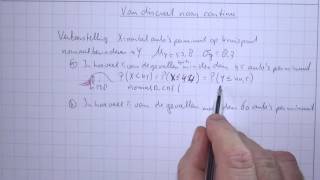 Van discreet naar continu
Verkeerstelling X: aantal auto's per minuut op kruispunt
normaal benaderen Y μY = 53,8 σY = 8,7
a) In hoeveel % van de gevallen minder dan 45 auto's per minuut
P(X<45) = P(X≤44) = P(Y≤44,5)
normalcdf(
b) In hoeveel % van de gevallen 60 auto's per minuut